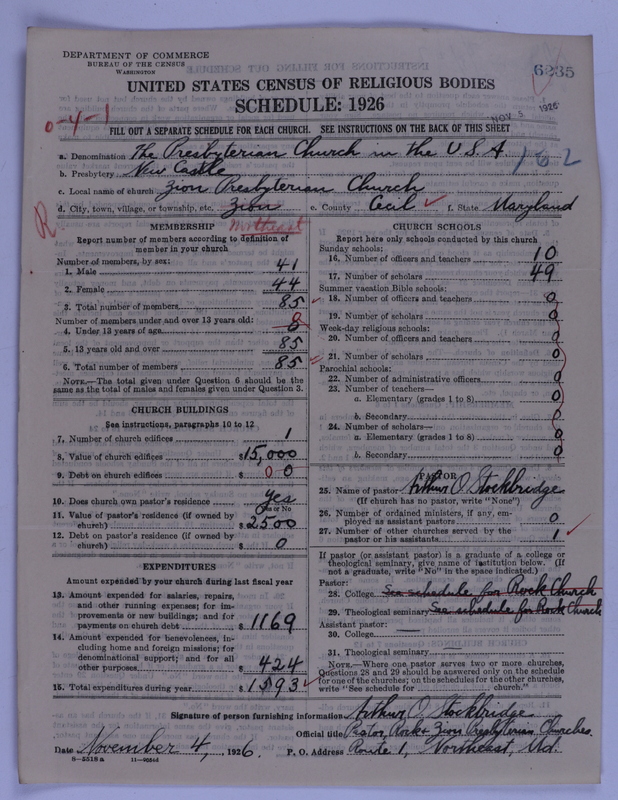 DEPARTMENT OF COMMERCE
BUREAU OF THE CENSUS
WASHINGTON
6235
UNITED STATES CENSUS OF RELIGIOUS BODIES
SCHEDULE: 1926
0-4-1
NOV 5 1926
FILL OUT A SEPARATE SCHEDULE FOR EACH CHURCH. SEE INSTRUCTIONS ON THE BACK OF THIS SHEET
a. Denomination The Presbyterian Church in the U.S.A. 162
b. Presbytery New Castle
c. Local name of church Zion Presbyterian Church
d. City, town, village, or township, etc. Zion e. County Cecil f. State Maryland
Northeast
R
MEMBERSHIP
Report number of members according to definition of
member in your church
Number of members, by sex:
1. Male 41
2. Female 44
3. Total number of members 85
Number of members under and over 13 years old:
4. Under 13 years of age 0
5. 13 years old and over 85
6. Total number of members 85
NOTE.—The total given under Question 6 should be the
same as the total of males and females given under Question 3.
CHURCH BUILDINGS
See instructions, paragraphs 10 to 12
7. Number of church edifices 1
8. Value of church edifices $15,000
9. Debt on church edifices $ 0 0
10. Does church own pastor's residence Yes
Yes or No
11. Value of pastor's residence (if owned by
church) $2500
12. Debt on pastor's residence (if owned by
church) $ 0
EXPENDITURES
Amount expended by your church during last fiscal year
13. Amount expended for salaries, repairs,
and other running expenses; for im-
provements or new buildings; and for
payments on church debt $1169
14. Amount expended for benevolences, in-
cluding home and foreign missions; for
denominational support; and for all
other purposes $ 424
15. Total expenditures during year $1593
CHURCH SCHOOLS
Report here only schools conducted by this church
Sunday schools:
16. Number of officers and teachers 10
17. Number of scholars 49
Summer vacation Bible schools:
18. Number of officers and teachers 0
19. Number of scholars 0
Week-day religious schools:
20. Number of officers and teachers 0
21. Number of scholars 0
Parochial schools:
22. Number of administrative officers 0
23. Number of teachers—
a. Elementary (grades 1 to 8) 0
b. Secondary 0
24. Number of scholars—
a. Elementary (grades 1 to 8) 0
b. Secondary 0
PASTOR
25. Name of pastor Arthur O. Stockbridge
(If church has no pastor, write "None")
26. Number of ordained ministers, if any, em-
ployed as assistant pastors 0
27. Number of other churches served by the
pastor or his assistants 1
If pastor (or assistant pastor) is a graduate of a college or
theological seminary, give name of institution below. (If
not a graduate, write "No" in the space indicated.)
Pastor:
28. College See schedule for Rock Church
29. Theological seminary See schedule for Rock Church
Assistant pastor:
30. College
31. Theological seminary
NOTE.—Where one pastor serves two or more churches,
Questions 28 and 29 should be answered only on the schedule
for one of the churches; on the schedules for the other churches,
write "See schedule for ........ church."
Signature of person furnishing information Arthur O. Stockbridge
Official title Pastor, Rock & Zion Presbyterian Churches.
Date November 4, 1926. P. O. Address Route 1, Northeast, Md.
8—5518 a 11—9054d